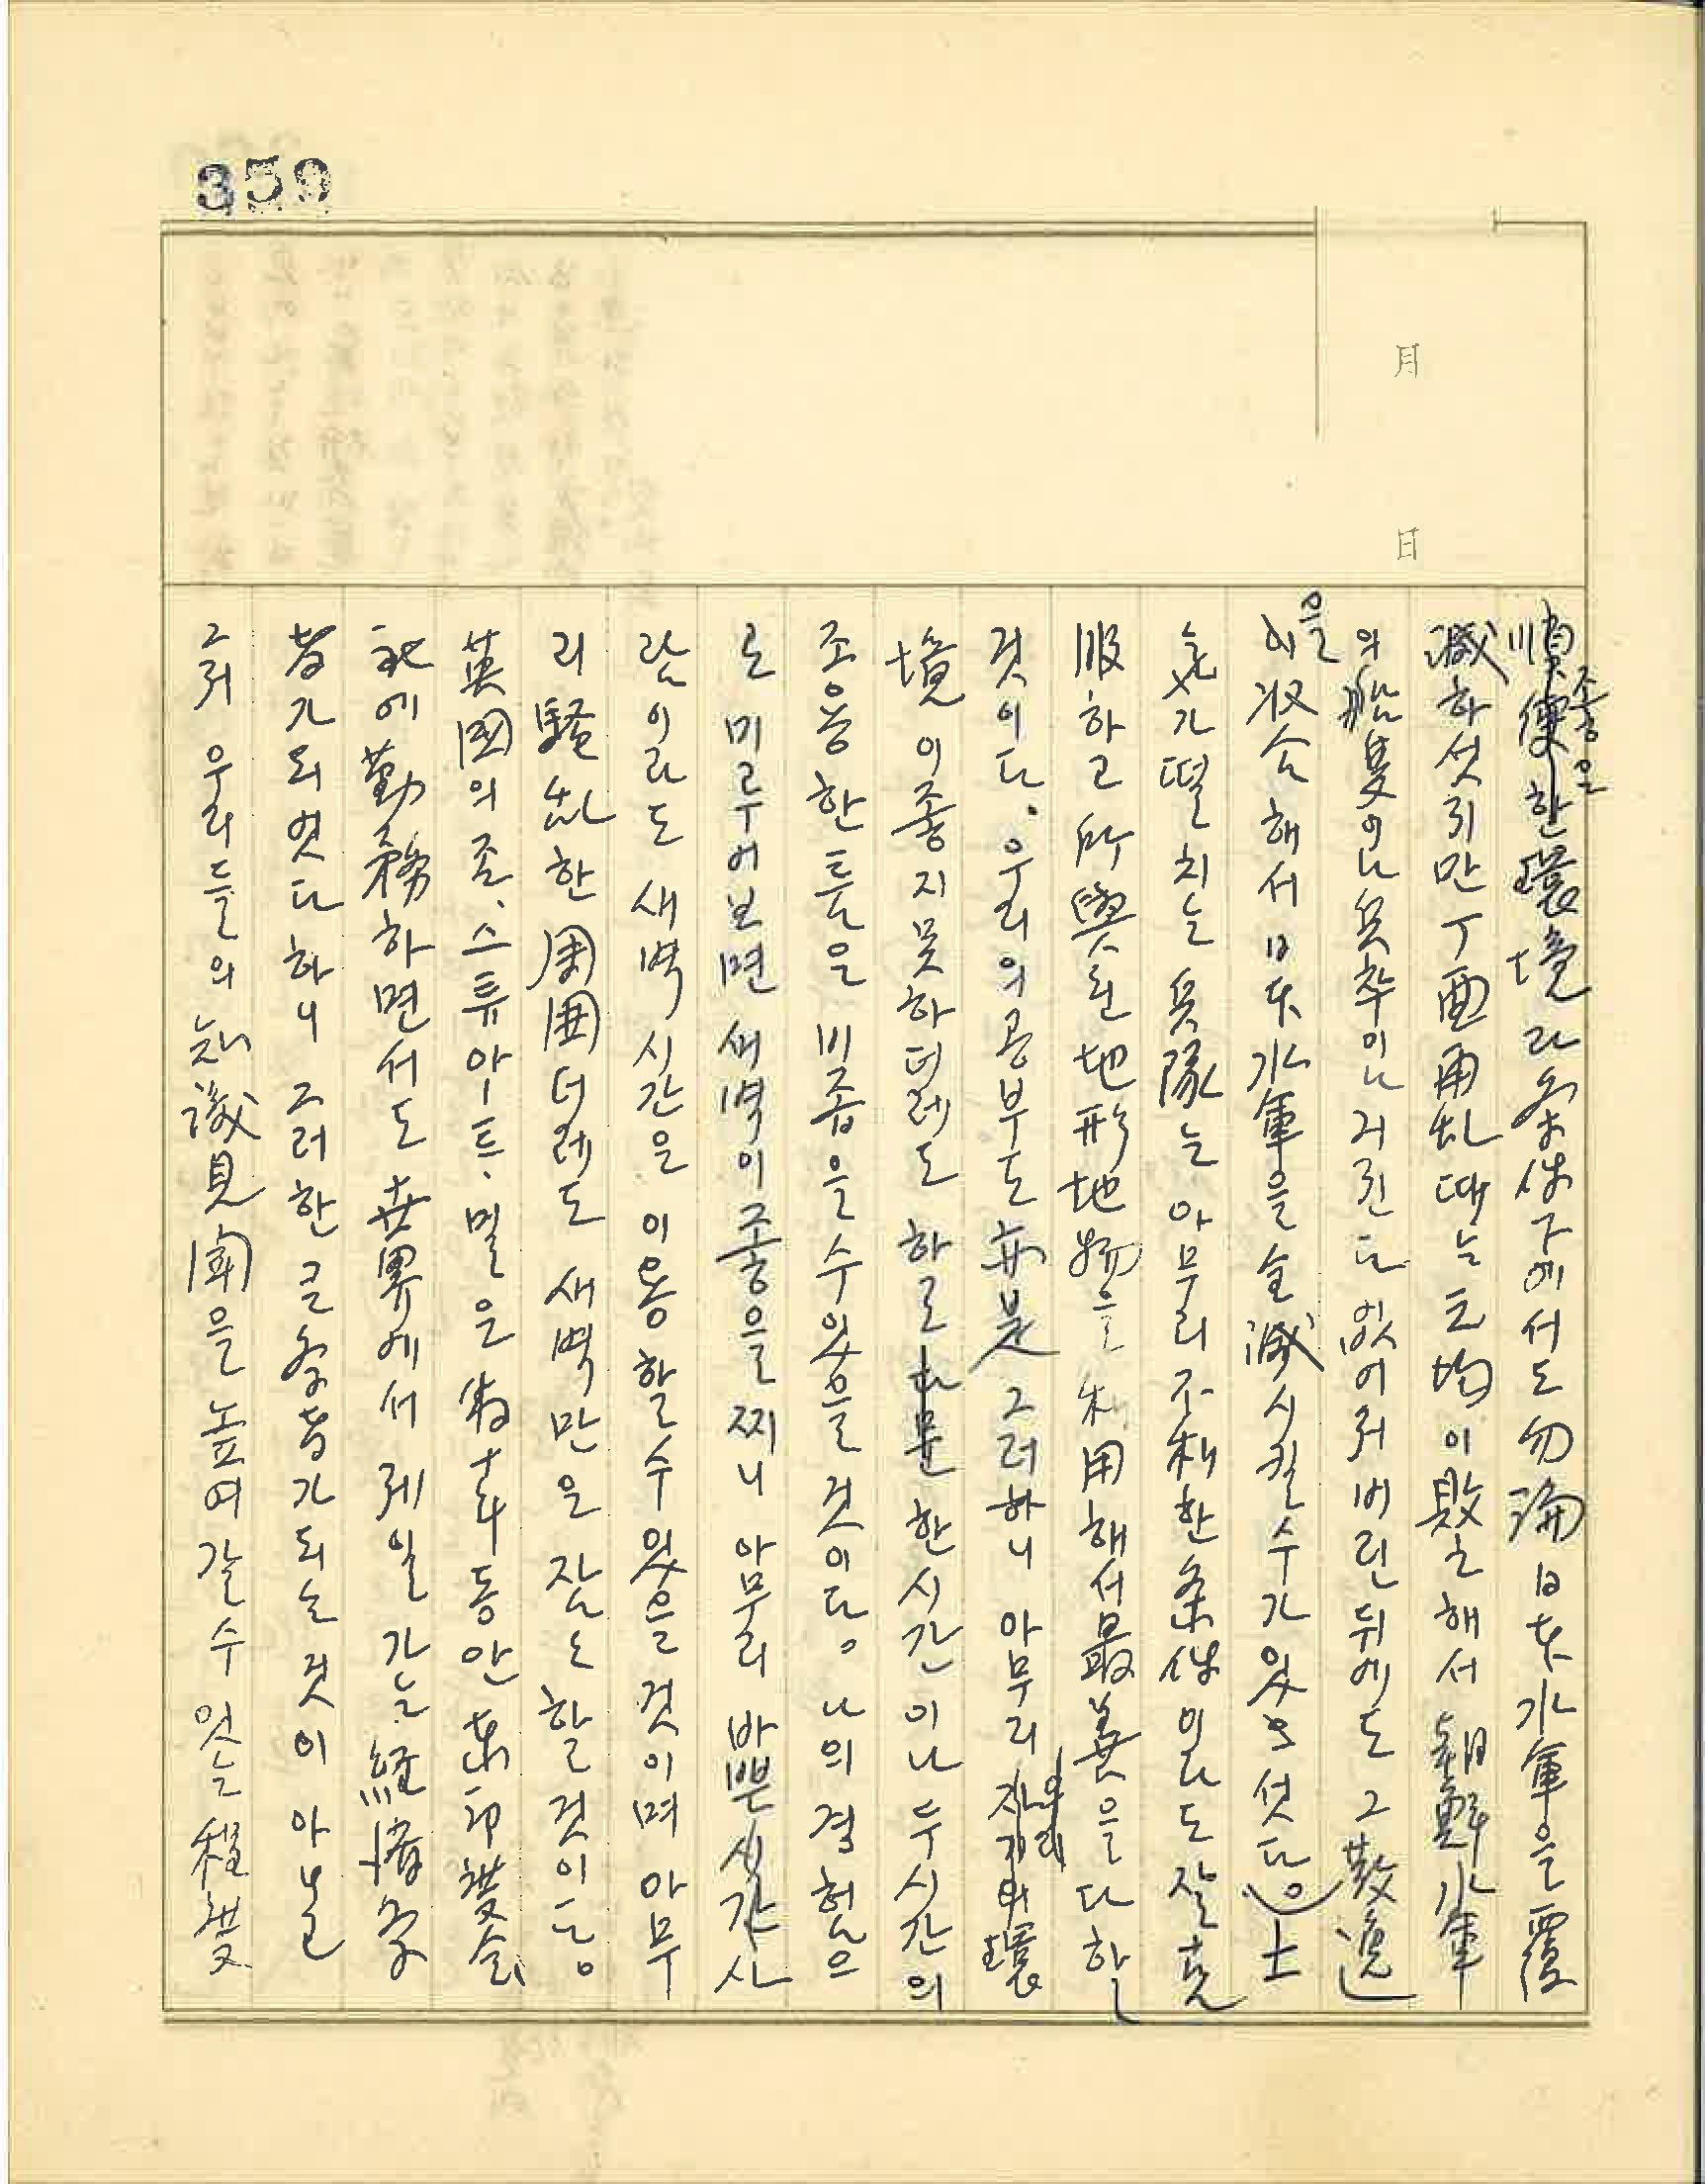 359
月
日
順便한環境과 좋은 条件下에서도 勿論 日本水軍을 覆
滅하섯지만 丁酉再乱때는 元均이 敗亡해서 朝鮮水軍
의 船隻이나 兵卒이나 거진 다 없어저버린 뒤에도 그 散逸
을 收合해서 日本水軍을 全滅시킬수가 있으섯다。) 士
氣가 떨치는 兵隊는 아무리 不利한 条件이라도 잘 克
服하고 所與된 地形地物을 利用해서 最善을 다할
것이다. 우리의 공부도 亦是 그러하니 아무리 우리 環
境이 좋지못하더래도 하로 한시간이나 두시간의
조용한 틈은 비죱을수있을 것이다。 나의 경험으
로 미루어보면 새벽이 좋을찌니 아무리 바쁜 사
람이라도 새벽시간은 이용할수있을 것이며 아무
리 騷乱한 周圍더래도 새벽만은 잠는할 것이다。
英國의 존.스튜아-트.밀은 數十年동안 東印度會
社에 勤務하면서도 世界에서 제일가는 経済学
者가 되엿다하니 그러한 큰 学者가 되는 것이 아닐
지 우리들의 知識見聞을 높여갈수 있는 程度